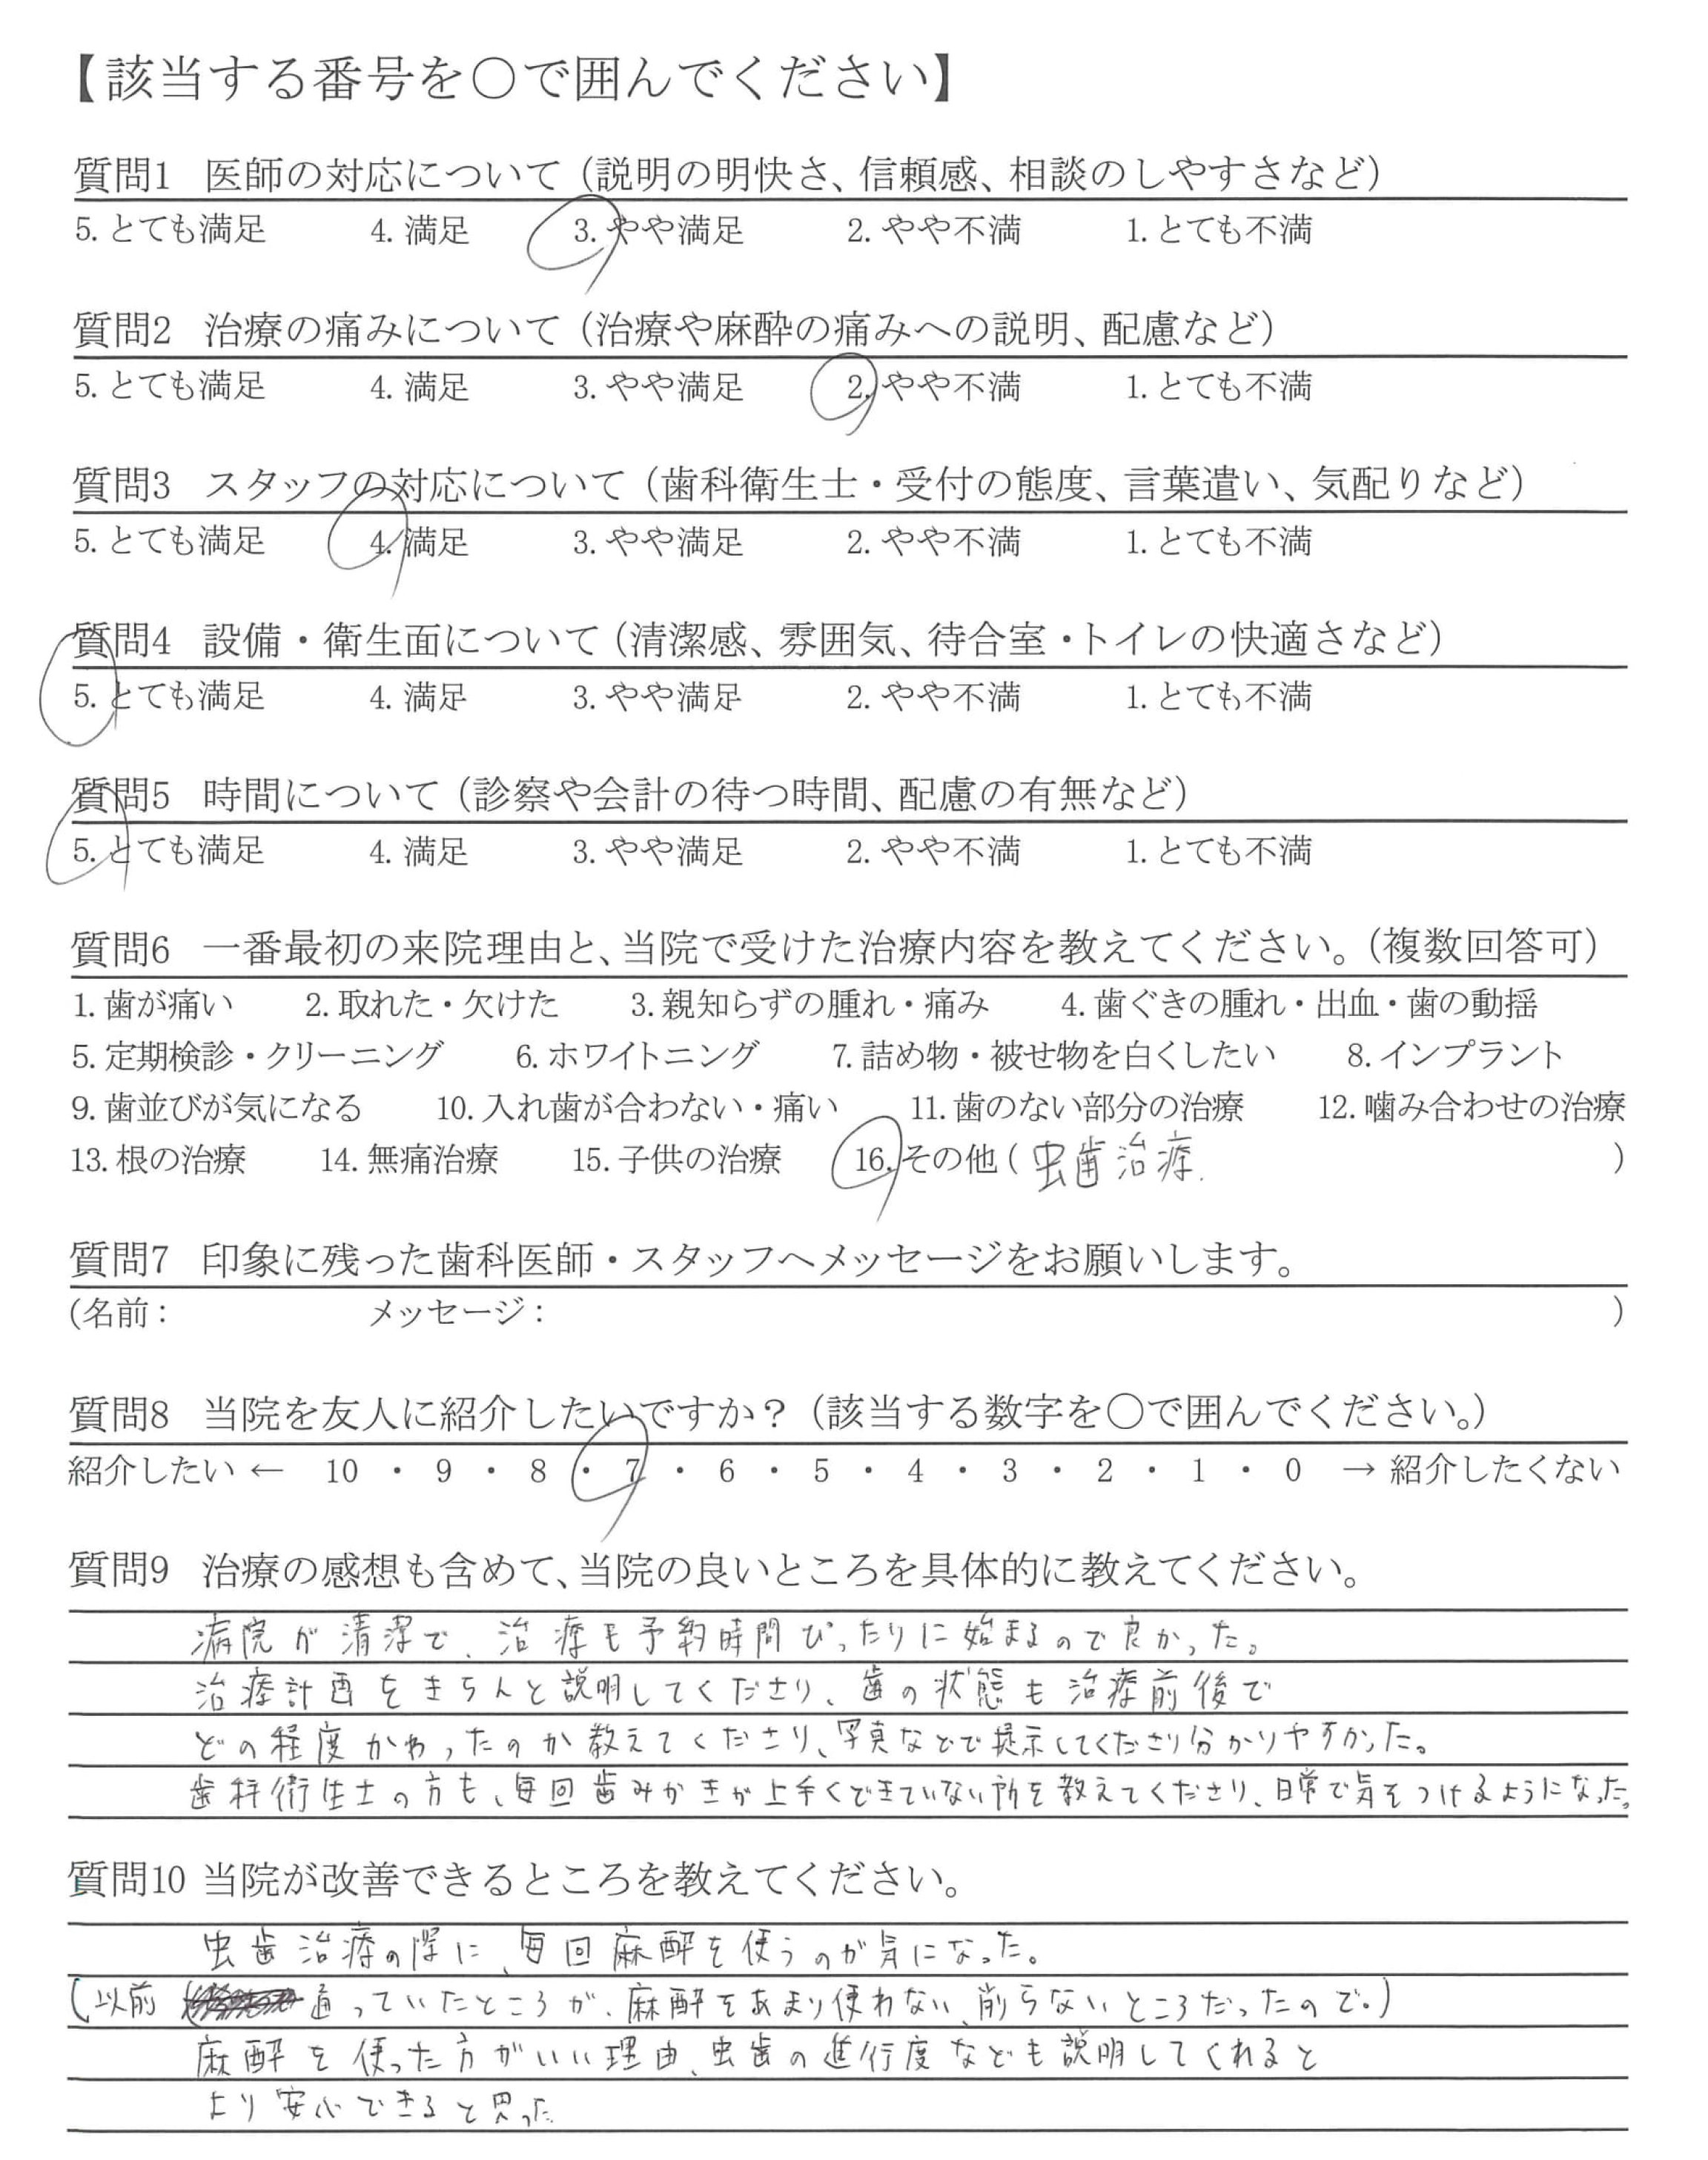 【該当する番号を○で囲んでください】
質問1 医師の対応について（説明の明快さ、信頼感、相談のしやすさなど）
5. とても満足 4. 満足 3. やや満足 2. やや不満 1. とても不満
質問2 治療の痛みについて（治療や麻酔の痛みへの説明、配慮など）
5. とても満足 4. 満足 3. やや満足 2. やや不満 1. とても不満
質問3 スタッフの対応について（歯科衛生士・受付の態度、言葉遣い、気配りなど）
5. とても満足 4. 満足 3. やや満足 2. やや不満 1. とても不満
質問4 設備・衛生面について（清潔感、雰囲気、待合室・トイレの快適さなど）
5. とても満足 4. 満足 3. やや満足 2. やや不満 1. とても不満
質問5 時間について（診察や会計の待つ時間、配慮の有無など）
5. とても満足 4. 満足 3. やや満足 2. やや不満 1. とても不満
質問6 一番最初の来院理由と、当院で受けた治療内容を教えてください。（複数回答可）
1. 歯が痛い 2. 取れた・欠けた 3. 親知らずの腫れ・痛み 4. 歯ぐきの腫れ・出血・歯の動揺
5. 定期検診・クリーニング 6. ホワイトニング 7. 詰め物・被せ物を白くしたい 8. インプラント
9. 歯並びが気になる 10. 入れ歯が合わない・痛い 11. 歯のない部分の治療 12. 噛み合わせの治療
13. 根の治療 14. 無痛治療 15. 子供の治療 16. その他（虫歯治療.）
質問7 印象に残った歯科医師・スタッフへメッセージをお願いします。
（名前： メッセージ： ）
質問8 当院を友人に紹介したいですか？（該当する数字を○で囲んでください。）
紹介したい ← 10 ・ 9 ・ 8 ・ 7 ・ 6 ・ 5 ・ 4 ・ 3 ・ 2 ・ 1 ・ 0 → 紹介したくない
質問9 治療の感想も含めて、当院の良いところを具体的に教えてください。
病院が清潔で、治療も予約時間ぴったりに始まるので良かった。
治療計画をきちんと説明してくださり、歯の状態も治療前後で
どの程度かわったのか教えてくださり、写真などで提示してくださり分かりやすかった。
歯科衛生士の方も、毎回歯みがきが上手くできていない所を教えてくださり、日常で気をつけるようになった。
質問10 当院が改善できるところを教えてください。
虫歯治療の際に、毎回麻酔を使うのが気になった。
（以前 通っていたところが、麻酔をあまり使わない、削らないところだったので。）
麻酔を使った方がいい理由、虫歯の進行度なども説明してくれると
より安心できると思った